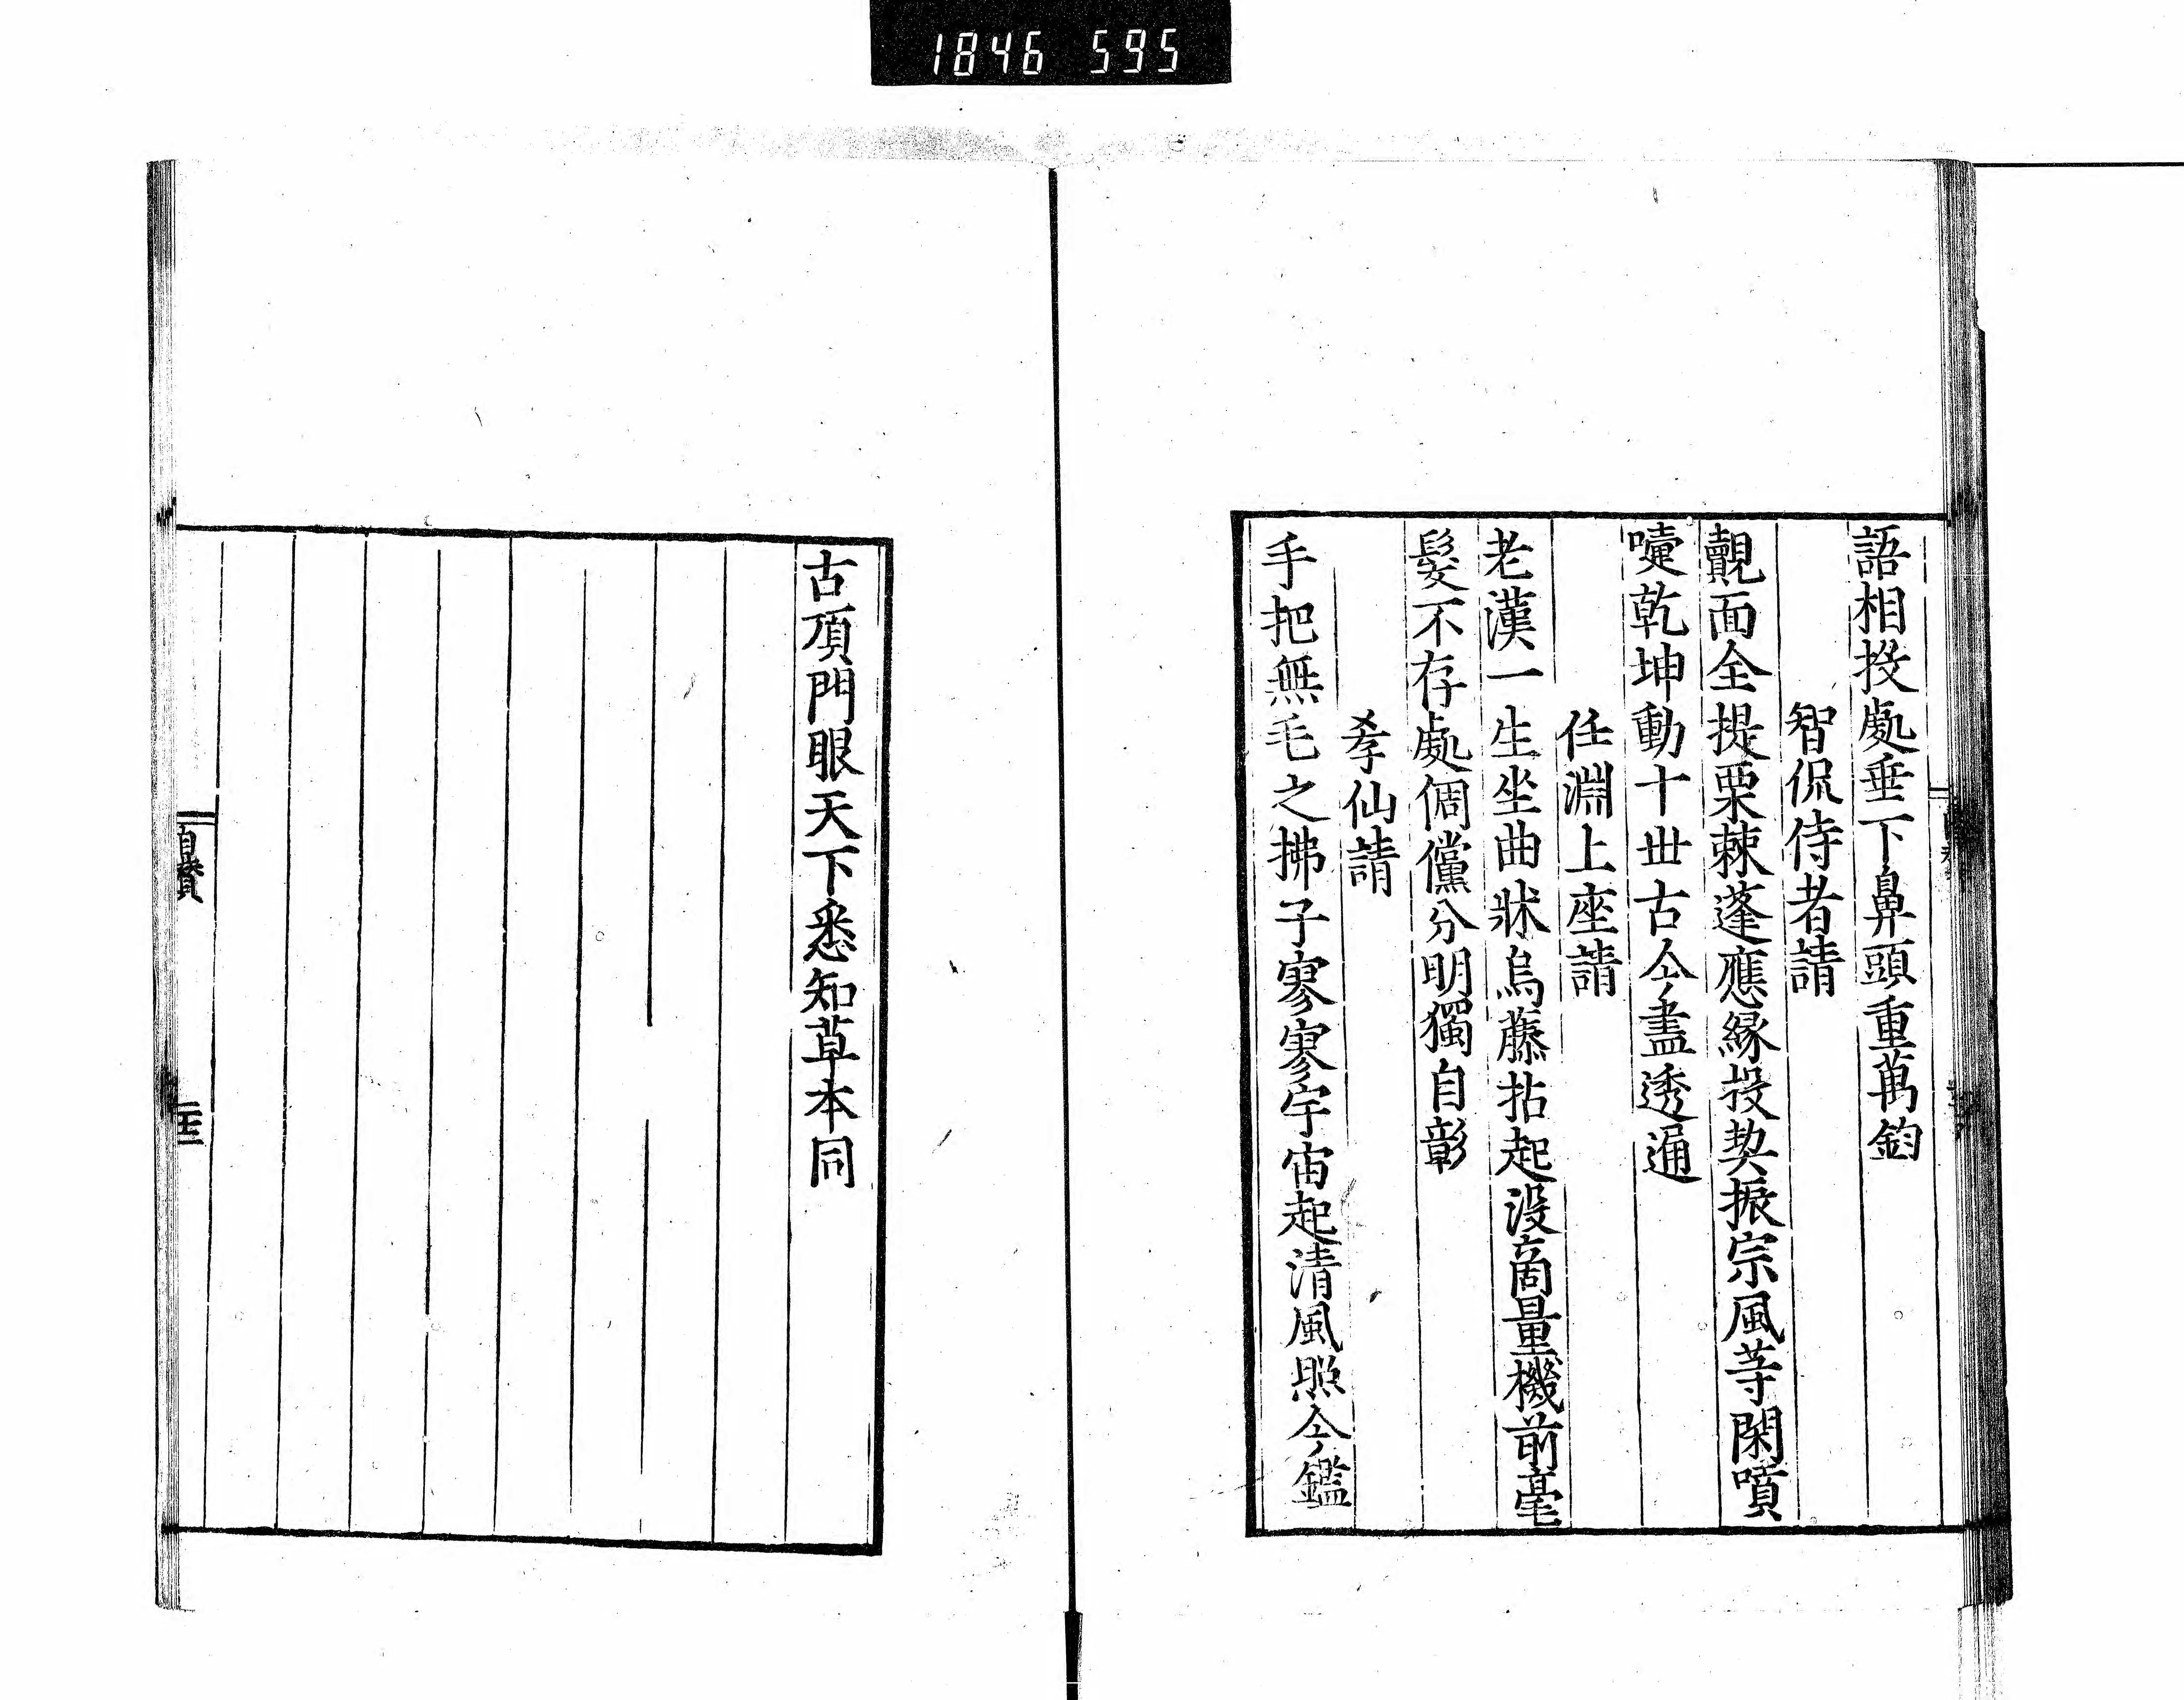 1846 595
語相投處垂下鼻頭重萬鈞
智侃侍者請
覿面全提栗棘蓬應緣投契振宗風等閑噴
嚏乾坤動十世古今盡透通
任淵上座請
老漢一生坐曲牀烏藤拈起沒商量機前毫
髮不存處倜儻分明獨自彰
孝仙請
手把無毛之拂子寥寥宇宙起清風照今鑑
古頂門眼天下悉知草本同
自贊